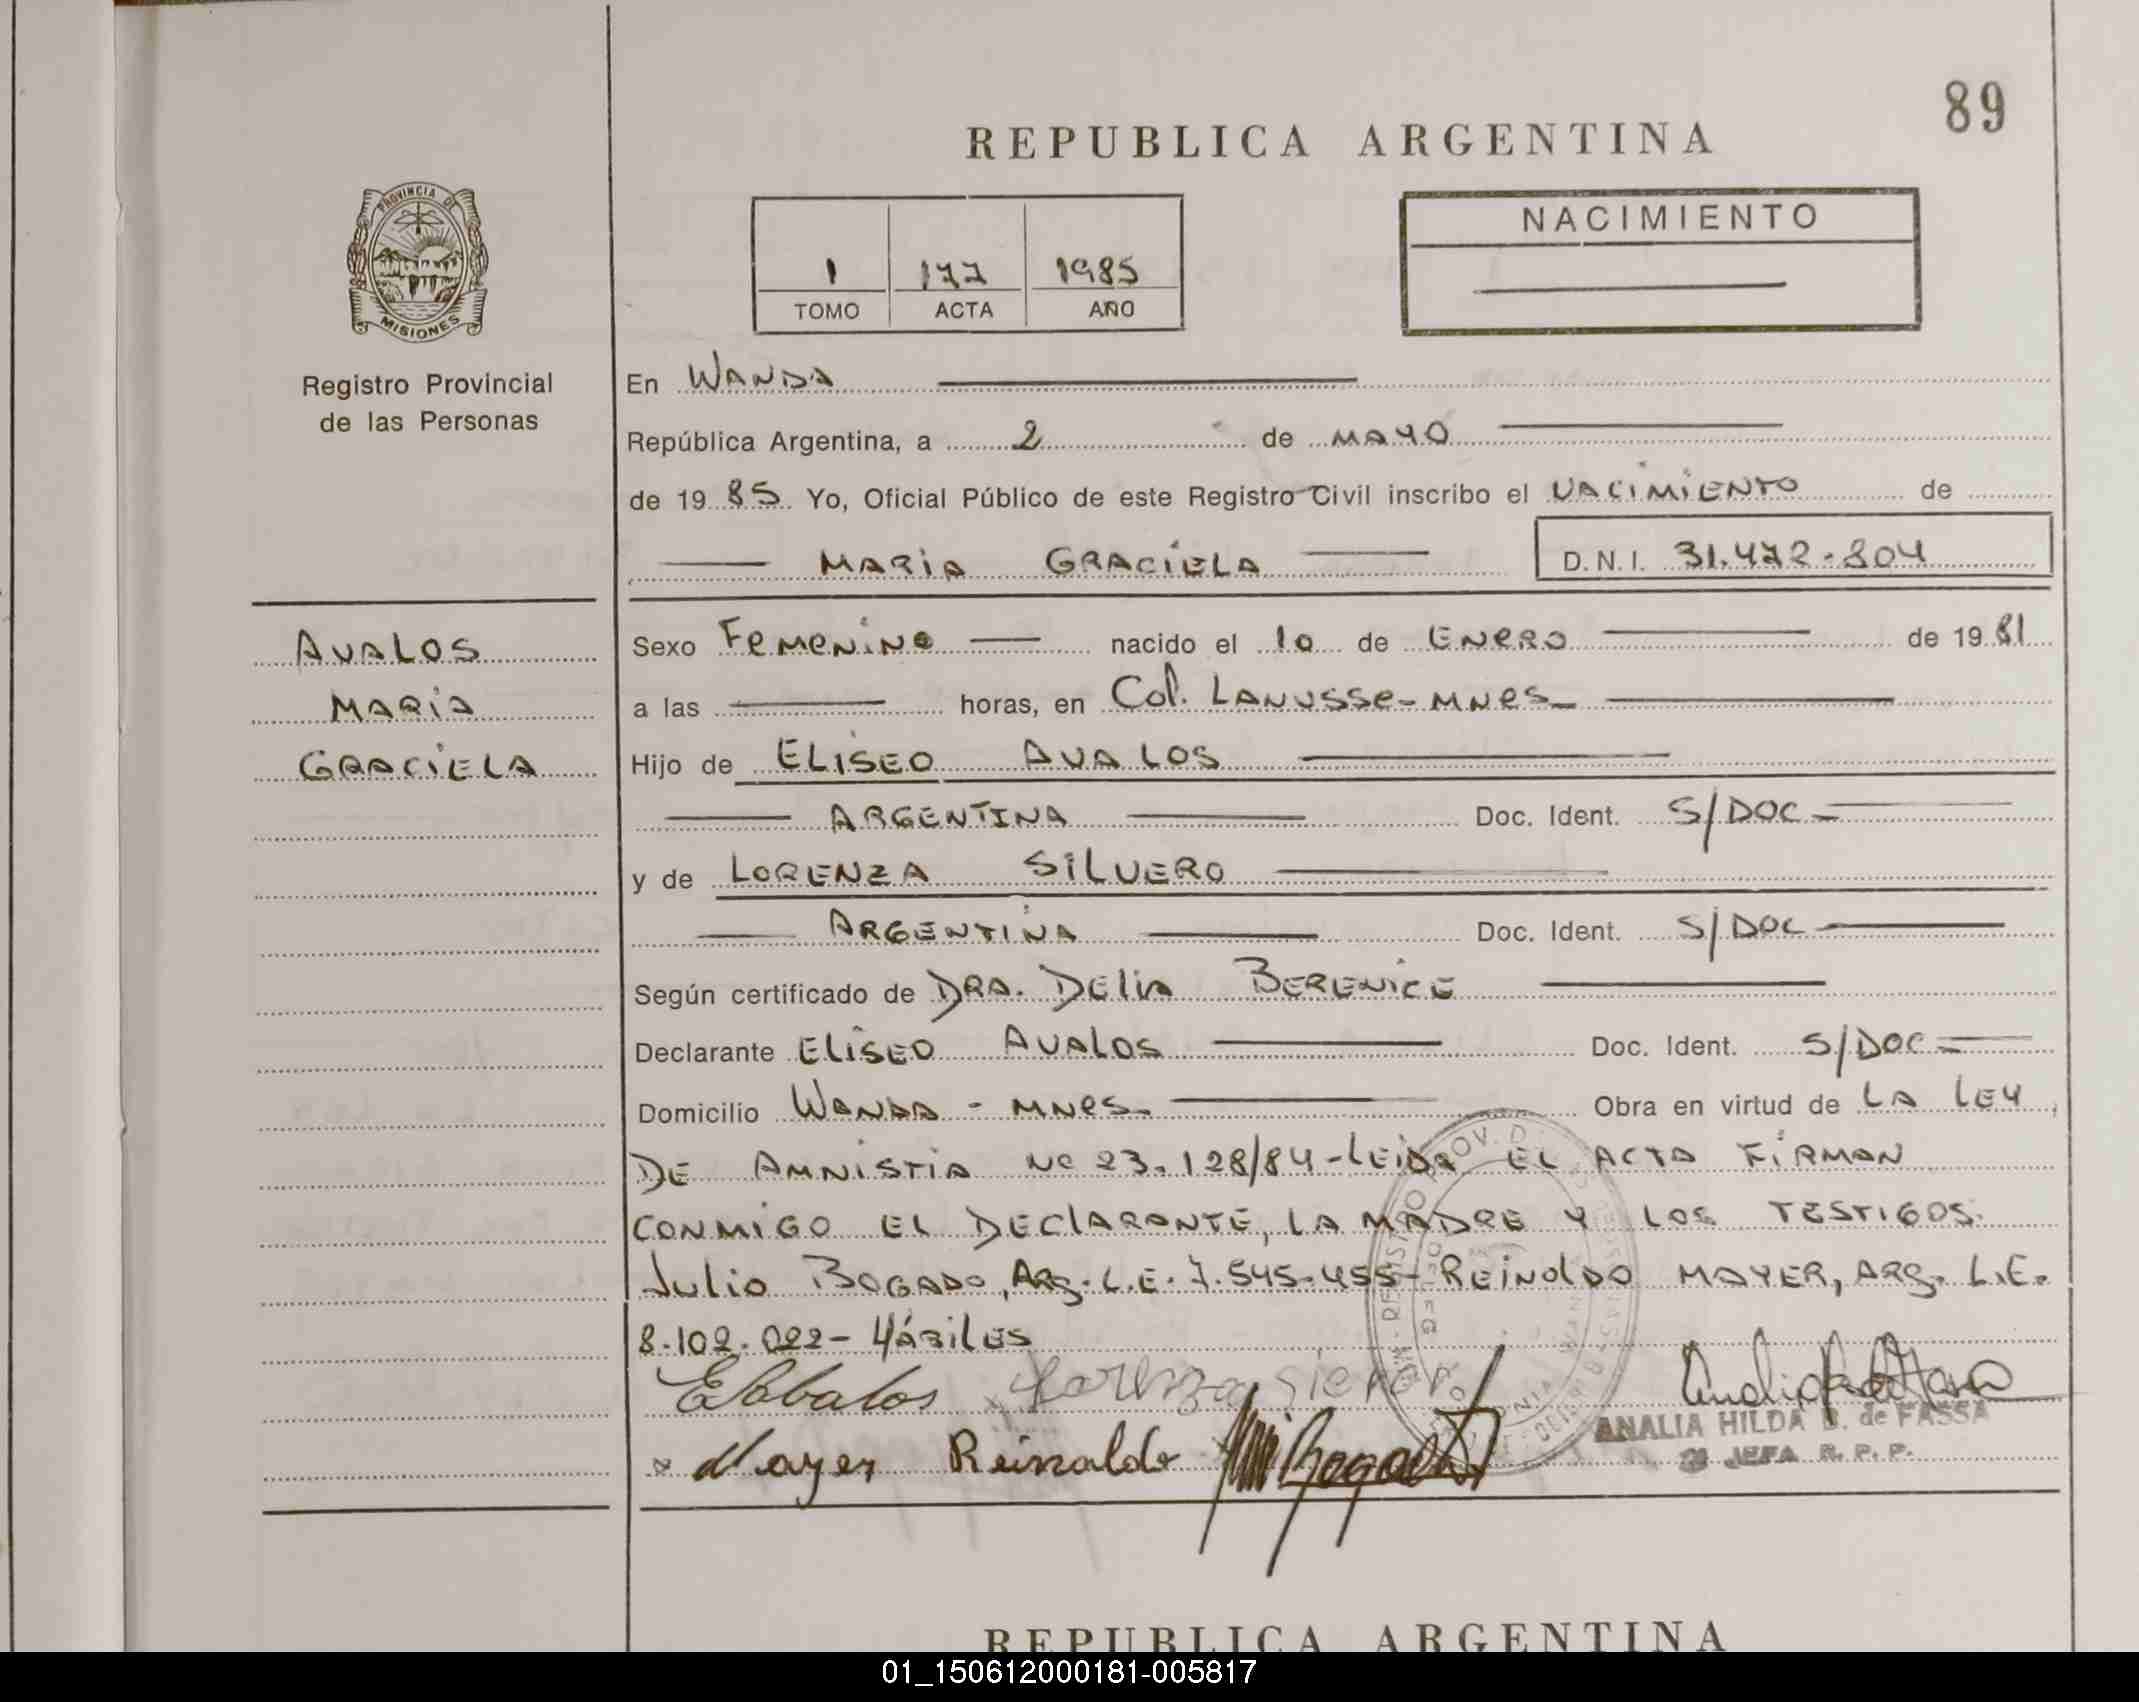 89
REPUBLICA ARGENTINA
PROVINCIA DE
MISIONES
Registro Provincial
de las Personas
1 177 1985
TOMO ACTA AÑO
NACIMIENTO
En WANDA
República Argentina, a 2 de MAYO
de 19 85 Yo, Oficial Público de este Registro Civil inscribo el NACIMIENTO de
MARIA GRACIELA D.N.I. 31.472.804
AVALOS
MARIA
GRACIELA
Sexo FEMENINO nacido el 10 de ENERO de 19 81
a las horas, en Col. LANUSSE-MNES
Hijo de ELISEO AVALOS
ARGENTINA Doc. Ident. S/DOC
y de LORENZA SILVERO
ARGENTINA Doc. Ident. S/DOC
Según certificado de DRA. DELIA BERENICE
Declarante ELISEO AVALOS Doc. Ident. S/DOC
Domicilio WANDA - MNES. Obra en virtud de LA LEY
DE AMNISTIA Nº 23.128/84-LEIDA EL ACTA FIRMAN
CONMIGO EL DECLARANTE, LA MADRE Y LOS TESTIGOS.
Julio BOGADO, ARG. L.E. 7.545.455- REINOLDO MAYER, ARG. L.E.
8.102.022- HÁBILES
EAbalos Lorenza
Mayer Reinaldo Bogado
ANALIA HILDA B. de FASSA
JEFA R. P. P.
REPUBLICA ARGENTINA
01_150612000181-005817